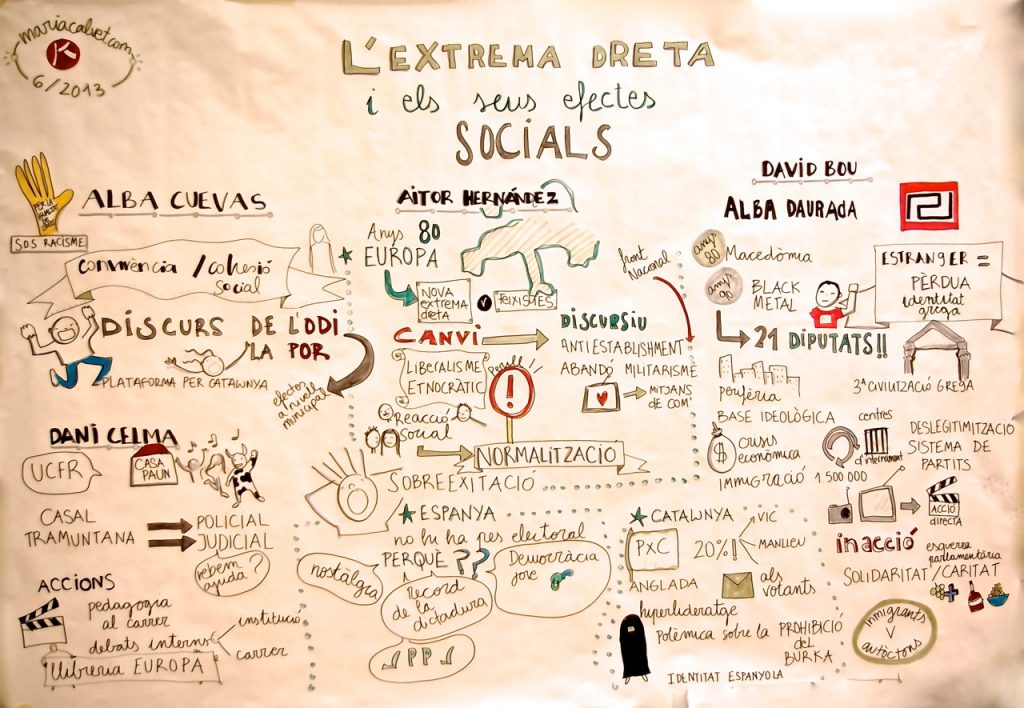 mariacalvet.com
6/2013
L'EXTREMA DRETA
i els seus efectes
SOCIALS
ALBA CUEVAS
S.O.S RACISME
convivència / cohesió
social
DISCURS DE L'ODI
LA POR
PLATAFORMA PER CATALUNYA
efectes
a nivell
municipal
DANI CELMA
UCFR
CASA
PAIRAL
CASAL
TRAMUNTANA
POLICIAL
JUDICIAL
rebem
ajuda?
ACCIONS
pedagogia
al carrer
debats interns
institució
carrer
Llibreria EUROPA
AITOR HERNÁNDEZ
Anys 80
EUROPA
NOVA
extrema
dreta
V
FEIXISTES
front
Nacional
CANVI
DISCURSIU
LIBERALISME
ETNOCRÀTIC
ANTIESTABLISHMENT
ABANDÓ MILITARISME
Perill
!
MITJANS
DE COM'
REACCIÓ
Social
NORMALITZACIÓ
SOBREEXITACIÓ
ESPANYA
no hi ha pes electoral
PERQUÈ ??
nostàlgia
Record
de la
dictadura
Democràcia
jove
PP
DAVID BOU
ALBA DAURADA
anys
80
Macedòmia
anys
90
BLACK
METAL
21 DIPUTATS!!
ESTRANGER =
PÈRDUA
identitat
grega
3ª CIVILITZACIÓ GREGA
perifèria
BASE IDEOLÒGICA
$
crisis
econòmica
IMMIGRACIÓ 1.500 000
centres
d'internament
DESLEGITIMITZACIÓ
SISTEMA DE
PARTITS
ACCIÓ
directa
inacció
esquerra
parlamentària
SOLIDARITAT/CARITAT
Inmigrants
V
autòctons
CATALUNYA
PxC
20%!
VIC
MANLLEU
ANGLADA
als
votants
hiperlideratge
polèmica sobre la PROHIBICIÓ
DEL
BURKA
IDENTITAT ESPANYOLA